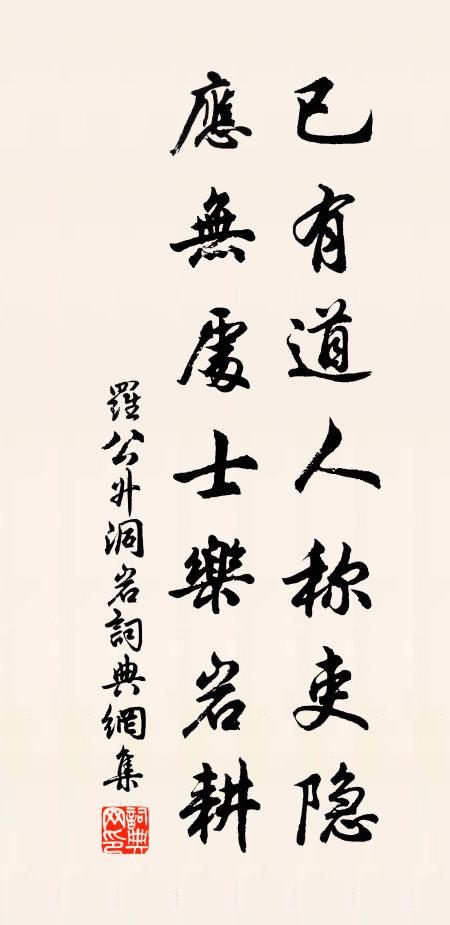 已有道人称吏隐
應無處士樂岩耕
羅公升洞岩詞典網集
詞典网印